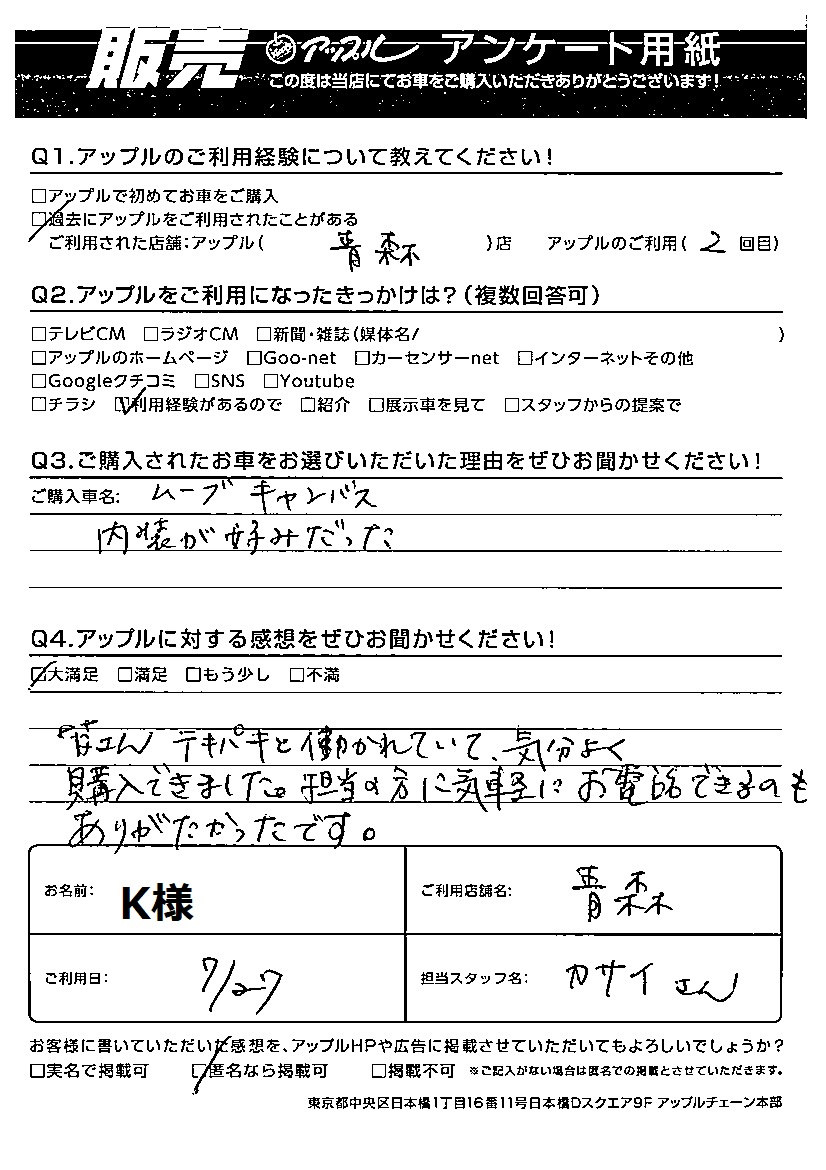 販売 アップル アンケート用紙
この度は当店にてお車をご購入いただきありがとうございます!
Q1.アップルのご利用経験について教えてください!
□アップルで初めてお車をご購入
□過去にアップルをご利用されたことがある
ご利用された店舗:アップル( 青森 )店 アップルのご利用( 2 回目)
Q2.アップルをご利用になったきっかけは?(複数回答可)
□テレビCM □ラジオCM □新聞・雑誌(媒体名/ )
□アップルのホームページ □Goo-net □カーセンサーnet □インターネットその他
□Googleクチコミ □SNS □Youtube
□チラシ □利用経験があるので □紹介 □展示車を見て □スタッフからの提案で
Q3.ご購入されたお車をお選びいただいた理由をぜひお聞かせください!
ご購入車名: ムーブキャンバス
内装が好みだった
Q4.アップルに対する感想をぜひお聞かせください!
□大満足 □満足 □もう少し □不満
皆さん テキパキと働かれていて、気分よく
購入できました。担当の方に気軽にお電話できるのも
ありがたかったです。
お名前: K様 ご利用店舗名: 青森
ご利用日: 7/27 担当スタッフ名: カサイさん
お客様に書いていただいた感想を、アップルHPや広告に掲載させていただいてもよろしいでしょうか?
□実名で掲載可 □匿名なら掲載可 □掲載不可 ※ご記入がない場合は匿名での掲載とさせていただきます。
東京都中央区日本橋1丁目16番11号日本橋Dスクエア9F アップルチェーン本部